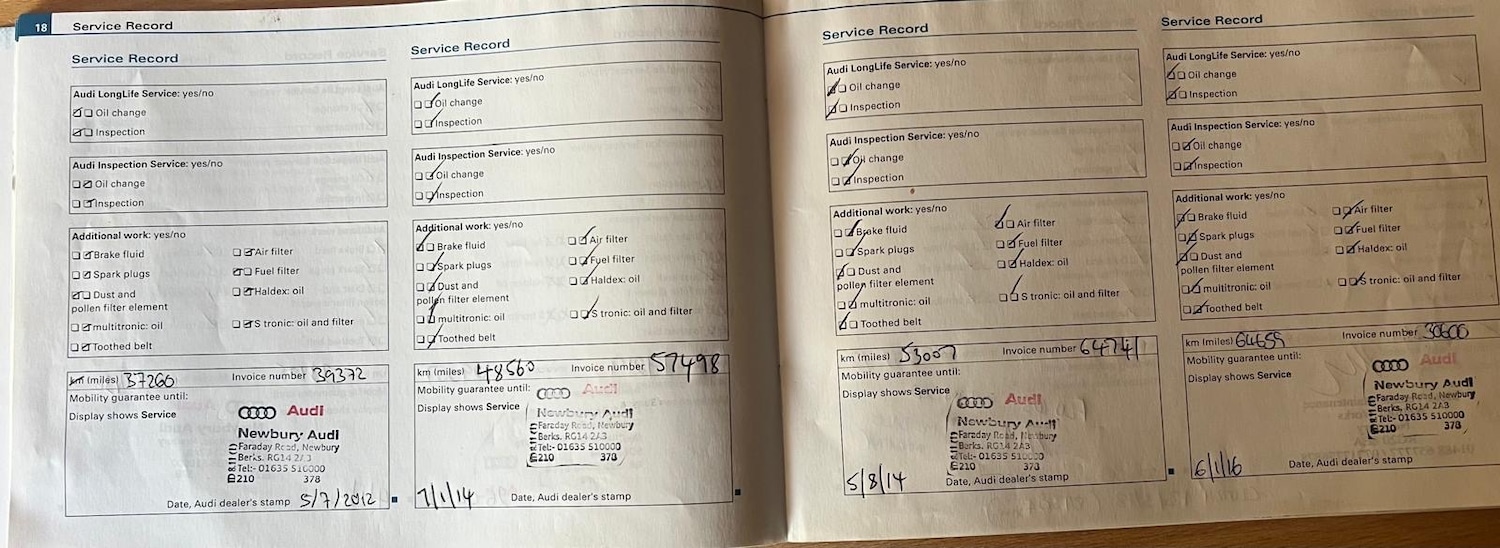 18 Service Record
Service Record
Audi LongLife Service: yes/no
Oil change
Inspection
Audi Inspection Service: yes/no
Oil change
Inspection
Additional work: yes/no
Brake fluid
Air filter
Spark plugs
Fuel filter
Dust and
pollen filter element
Haldex: oil
multitronic: oil
S tronic: oil and filter
Toothed belt
km (miles) 37266 Invoice number 39372
Mobility guarantee until:
Display shows Service
Audi
Newbury Audi
Faraday Road, Newbury
Berks. RG14 2
Tel:- 01635 510000
210 378
Date, Audi dealer's stamp 5/7/2012
Service Record
Audi LongLife Service: yes/no
Oil change
Inspection
Audi Inspection Service: yes/no
Oil change
Inspection
Additional work: yes/no
Brake fluid
Air filter
Spark plugs
Fuel filter
Dust and
pollen filter element
Haldex: oil
multitronic: oil
S tronic: oil and filter
Toothed belt
km (miles) 48560 Invoice number 57498
Mobility guarantee until:
Display shows Service
Audi
Newbury Audi
Faraday Road, Newbury
Berks. RG14 2A3
Tel:- 01635 510000
210 378
7/1/14 Date, Audi dealer's stamp
Service Record
Audi LongLife Service: yes/no
Oil change
Inspection
Audi Inspection Service: yes/no
Oil change
Inspection
Additional work: yes/no
Brake fluid
Air filter
Spark plugs
Fuel filter
Dust and
pollen filter element
Haldex: oil
multitronic: oil
S tronic: oil and filter
Toothed belt
km (miles) 53007 Invoice number 64741
Mobility guarantee until:
Display shows Service
Audi
Newbury Audi
Faraday Road, Newbury
Berks. RG14 2A3
Tel:- 01635 510000
210 378
5/8/14 Date, Audi dealer's stamp
Service Record
Audi LongLife Service: yes/no
Oil change
Inspection
Audi Inspection Service: yes/no
Oil change
Inspection
Additional work: yes/no
Brake fluid
Air filter
Spark plugs
Fuel filter
Dust and
pollen filter element
Haldex: oil
multitronic: oil
S tronic: oil and filter
Toothed belt
km (miles) 64659 Invoice number 30600
Mobility guarantee until:
Display shows Service
Audi
Newbury Audi
Faraday Road, Newbury
Berks, RG14 2A3
Tel:- 01635 510000
210 378
6/1/16 Date, Audi dealer's stamp